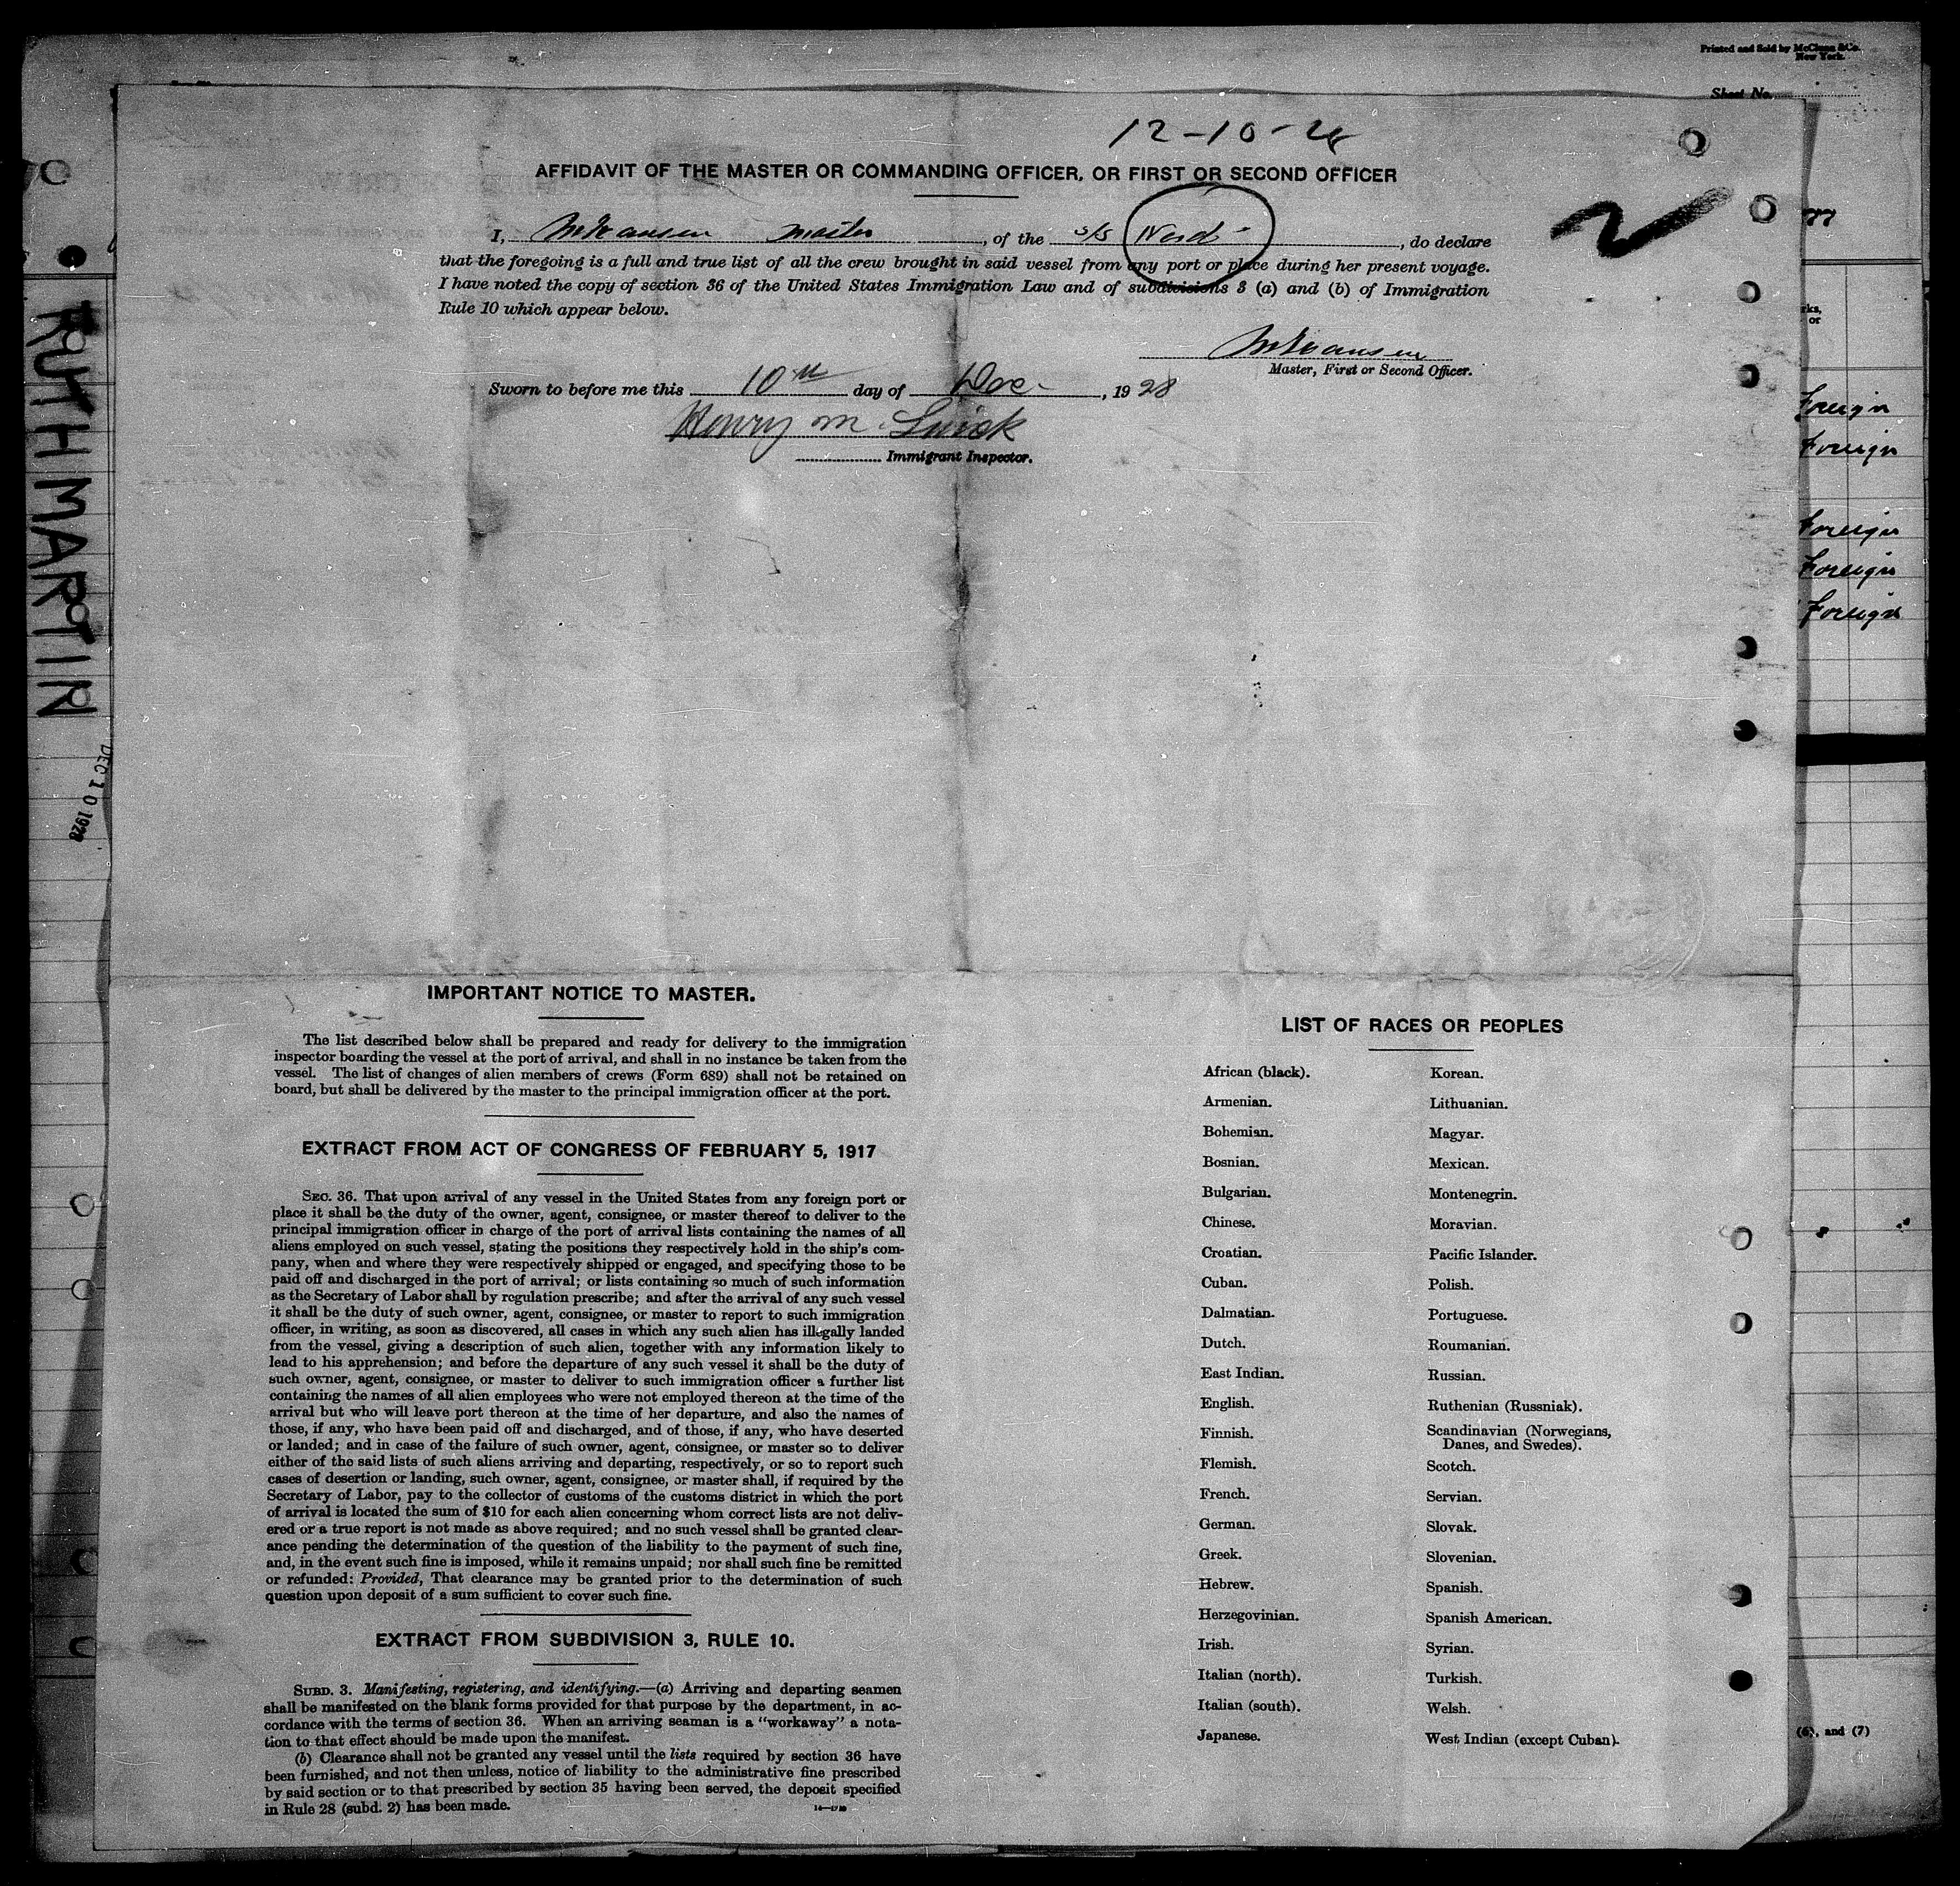 Printed and Sold by McClunn & Co.
New York.
Sheet No.
12-10-28
AFFIDAVIT OF THE MASTER OR COMMANDING OFFICER, OR FIRST OR SECOND OFFICER
I, Master, of the S/S Nord, do declare
that the foregoing is a full and true list of all the crew brought in said vessel from any port or place during her present voyage.
I have noted the copy of section 36 of the United States Immigration Law and of subdivisions 3 (a) and (b) of Immigration
Rule 10 which appear below.
Master, First or Second Officer.
Sworn to before me this 10th day of Dec-, 1928
Henry M.
Immigrant Inspector.
rks,
or
Foreign
Foreign
Foreign
Foreign
Foreign
RUTH MARTIN
DEC 10 1928
IMPORTANT NOTICE TO MASTER.
The list described below shall be prepared and ready for delivery to the immigration
inspector boarding the vessel at the port of arrival, and shall in no instance be taken from the
vessel. The list of changes of alien members of crews (Form 689) shall not be retained on
board, but shall be delivered by the master to the principal immigration officer at the port.
EXTRACT FROM ACT OF CONGRESS OF FEBRUARY 5, 1917
SEC. 36. That upon arrival of any vessel in the United States from any foreign port or
place it shall be the duty of the owner, agent, consignee, or master thereof to deliver to the
principal immigration officer in charge of the port of arrival lists containing the names of all
aliens employed on such vessel, stating the positions they respectively hold in the ship's com-
pany, when and where they were respectively shipped or engaged, and specifying those to be
paid off and discharged in the port of arrival; or lists containing so much of such information
as the Secretary of Labor shall by regulation prescribe; and after the arrival of any such vessel
it shall be the duty of such owner, agent, consignee, or master to report to such immigration
officer, in writing, as soon as discovered, all cases in which any such alien has illegally landed
from the vessel, giving a description of such alien, together with any information likely to
lead to his apprehension; and before the departure of any such vessel it shall be the duty of
such owner, agent, consignee, or master to deliver to such immigration officer a further list
containing the names of all alien employees who were not employed thereon at the time of the
arrival but who will leave port thereon at the time of her departure, and also the names of
those, if any, who have been paid off and discharged, and of those, if any, who have deserted
or landed; and in case of the failure of such owner, agent, consignee, or master so to deliver
either of the said lists of such aliens arriving and departing, respectively, or so to report such
cases of desertion or landing, such owner, agent, consignee, or master shall, if required by the
Secretary of Labor, pay to the collector of customs of the customs district in which the port
of arrival is located the sum of $10 for each alien concerning whom correct lists are not deliv-
ered or a true report is not made as above required; and no such vessel shall be granted clear-
ance pending the determination of the question of the liability to the payment of such fine,
and, in the event such fine is imposed, while it remains unpaid; nor shall such fine be remitted
or refunded: Provided, That clearance may be granted prior to the determination of such
question upon deposit of a sum sufficient to cover such fine.
EXTRACT FROM SUBDIVISION 3, RULE 10.
SUBD. 3. Manifesting, registering, and identifying.—(a) Arriving and departing seamen
shall be manifested on the blank forms provided for that purpose by the department, in ac-
cordance with the terms of section 36. When an arriving seaman is a "workaway" a nota-
tion to that effect should be made upon the manifest.
(b) Clearance shall not be granted any vessel until the lists required by section 36 have
been furnished, and not then unless, notice of liability to the administrative fine prescribed
by said section or to that prescribed by section 35 having been served, the deposit specified
in Rule 28 (subd. 2) has been made.
LIST OF RACES OR PEOPLES
African (black).
Armenian.
Bohemian.
Bosnian.
Bulgarian.
Chinese.
Croatian.
Cuban.
Dalmatian.
Dutch.
East Indian.
English.
Finnish.
Flemish.
French.
German.
Greek.
Hebrew.
Herzegovinian.
Irish.
Italian (north).
Italian (south).
Japanese.
Korean.
Lithuanian.
Magyar.
Mexican.
Montenegrin.
Moravian.
Pacific Islander.
Polish.
Portuguese.
Roumanian.
Russian.
Ruthenian (Russniak).
Scandinavian (Norwegians,
Danes, and Swedes).
Scotch.
Servian.
Slovak.
Slovenian.
Spanish.
Spanish American.
Syrian.
Turkish.
Welsh.
West Indian (except Cuban).
(6), and (7)